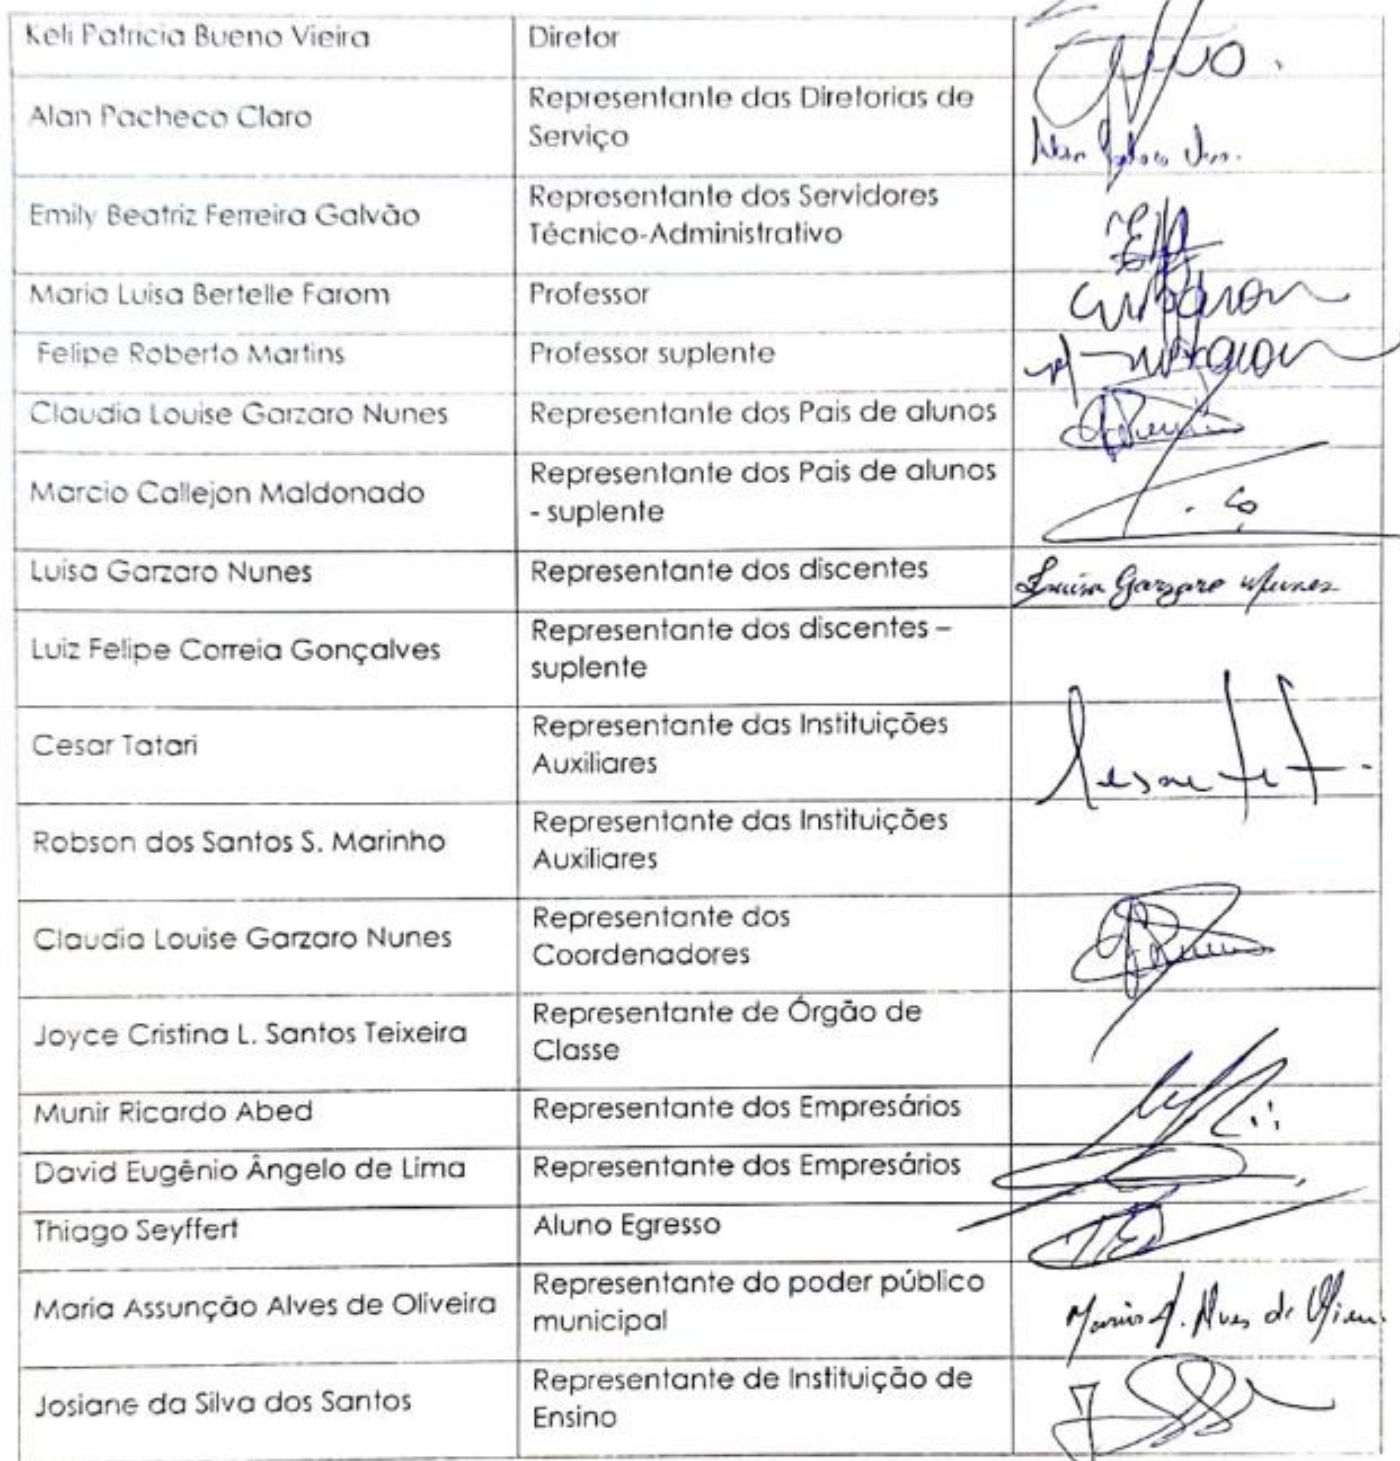 Keli Patricia Bueno Vieira
Diretor
Alan Pacheco Claro
Representante das Diretorias de
Serviço
Emily Beatriz Ferreira Galvão
Representante dos Servidores
Técnico-Administrativo
Maria Luisa Bertelle Farom
Professor
Felipe Roberto Martins
Professor suplente
Claudia Louise Garzaro Nunes
Representante dos Pais de alunos
Marcio Callejon Maldonado
Representante dos Pais de alunos
- suplente
Luisa Garzaro Nunes
Representante dos discentes
Luisa Garzaro Nunes
Luiz Felipe Correia Gonçalves
Representante dos discentes –
suplente
Cesar Tatari
Representante das Instituições
Auxiliares
Robson dos Santos S. Marinho
Representante das Instituições
Auxiliares
Claudia Louise Garzaro Nunes
Representante dos
Coordenadores
Joyce Cristina L. Santos Teixeira
Representante de Órgão de
Classe
Munir Ricardo Abed
Representante dos Empresários
David Eugênio Ângelo de Lima
Representante dos Empresários
Thiago Seyffert
Aluno Egresso
Maria Assunção Alves de Oliveira
Representante do poder público
municipal
Maria A. Alves de
Josiane da Silva dos Santos
Representante de Instituição de
Ensino